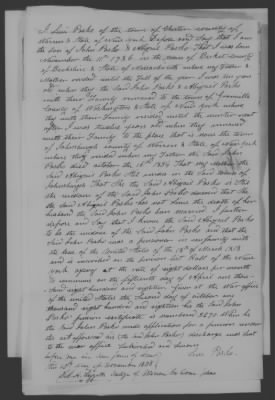 I Levi Parks of the town of Chester county of
Warren & State of New York Depose and Say that I am
the Son of John Parks & Abigail Parks That I was born
November the 11th 1786 in the town of Becket County
of Berkshire & State of Massachusetts where my Father &
Mother resided until the fall of the year I was
old when they the Said John Parks & Abigail Parks
with their Family removed to the town of Granville
County of Washington & State of New York where
they with their Family resided until the winter next
after I was twelve years old when they removed
with their Family to the place that is now the town
of Johnsburgh county of Warren & State of New York
where they resided when my Father the Said John
Parks died October the 1831 That my mother the
Said Abigail Parks Still resides in the Said town of
Johnsburgh That She the Said Abigail Parks is Still
the widow of the Said John Parks deceased that She
the Said Abigail Parks has not Since the death of her
husband the Said John Parks been married I further
depose and Say that I know the Said Abigail Parks
to be the widow of the Said John Parks and that the
Said John Parks was a pensioner in conformity with
the law of the United States of the 18th of March 1818
and is inscribed on the pension list Roll of the New
York agency at the rate of eight dollars per month
to commence on the fifteenth day of April one thousand
eight hundred and eighteen given at the War office
of the united States the day of one
thousand eight hundred and eighteen the Said John
Parks pension certificate is numbered When he
the Said John Parks made application for a pension under
the act aforesaid he (the Said John Parks) discharge was Sent
to the war office Subscribed and Sworn
before me in due form of Law Levi Parks
this day of November 1838
Judge of Warren Co Com pleas